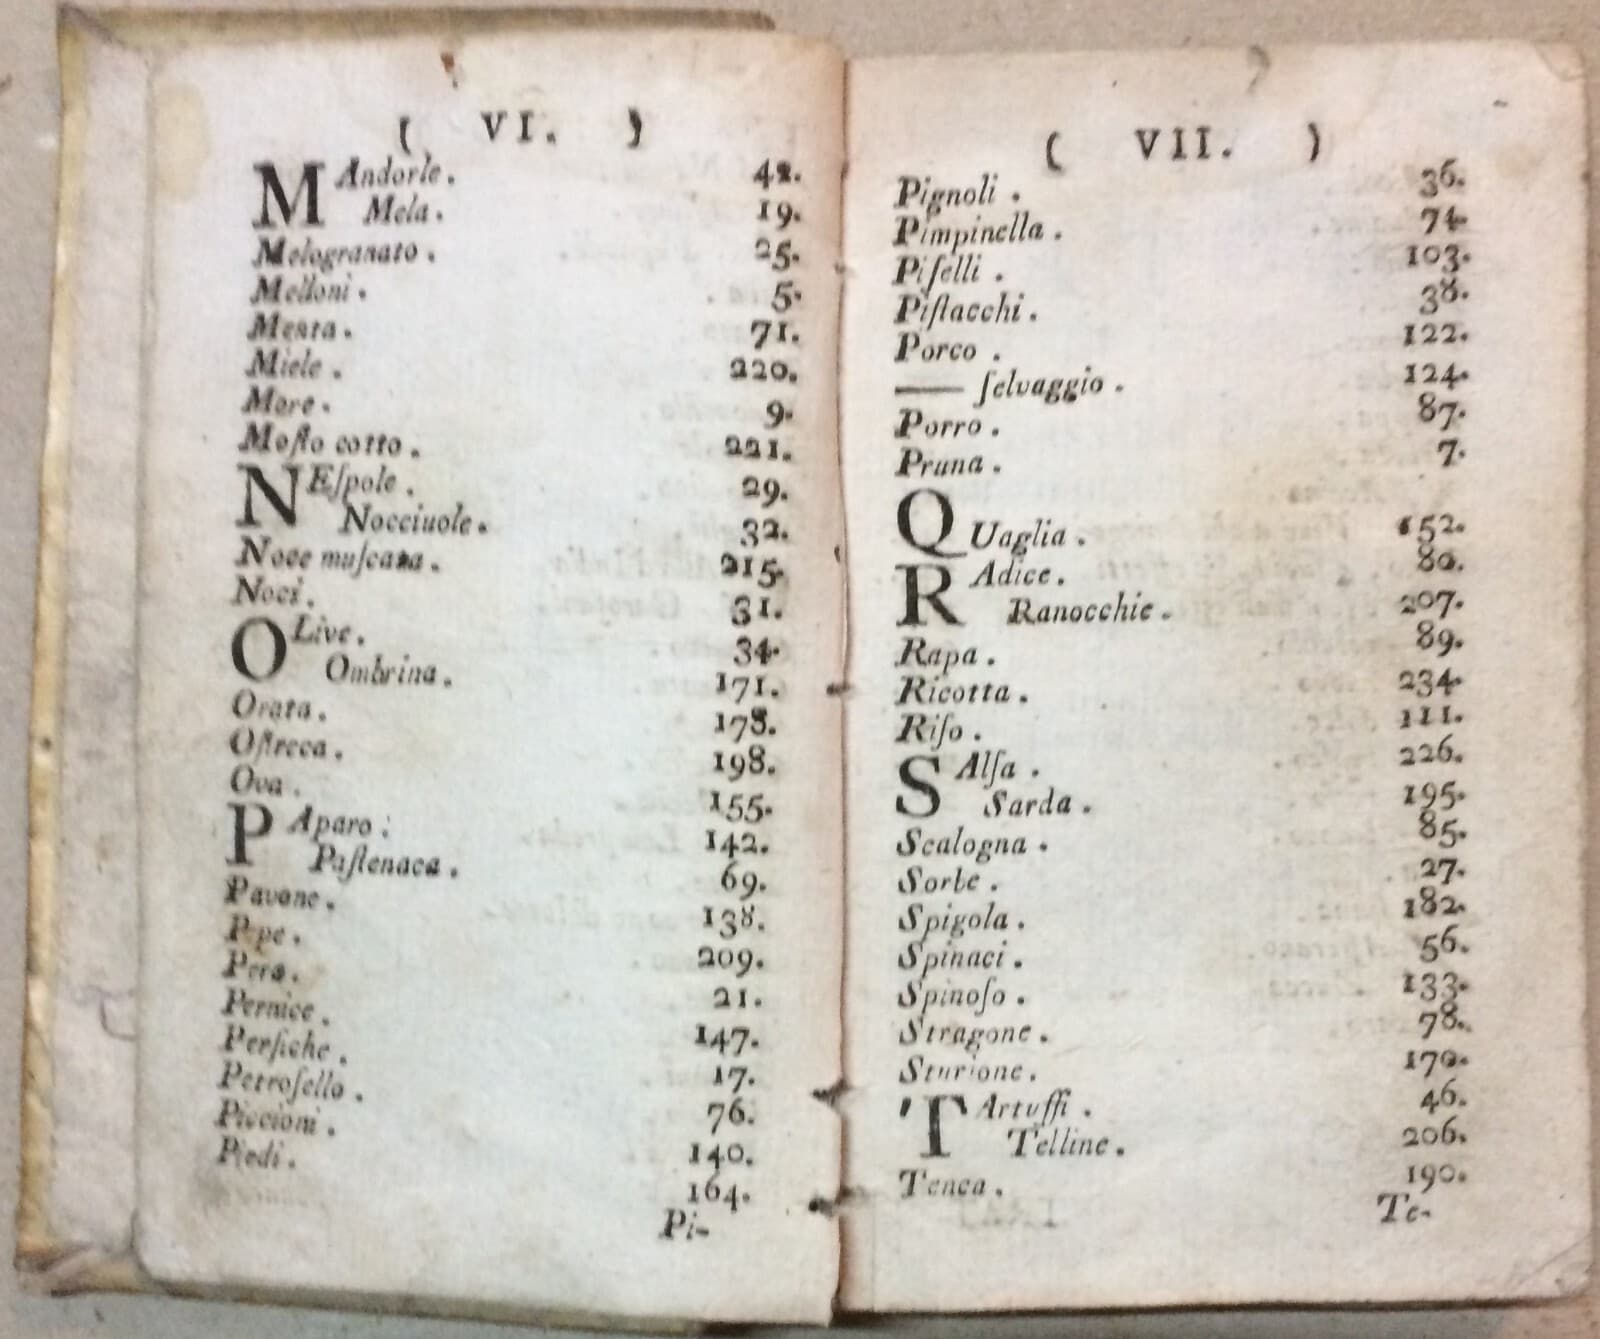 ( VI. )
MAndorle . 42.
Mela . 19.
Melogranato . 25.
Melloni . 5.
Menta . 71.
Miele . 220.
More . 9.
Moſto cotto . 221.
NEſpole . 29.
Nocciuole . 32.
Noce muſcata . 215.
Noci . 31.
OLive . 34.
Ombrina . 171.
Orata . 178.
Oſtreca . 198.
Ova . 155.
PAparo . 142.
Paſtenaca . 69.
Pavone . 138.
Pepe . 209.
Pera . 21.
Pernice . 147.
Perſiche . 17.
Petroſello . 76.
Piccioni . 140.
Piedi . 164.
Pi-
( VII. )
Pignoli . 36.
Pimpinella . 74.
Piſelli . 103.
Piſtacchi . 38.
Porco . 122.
—— ſelvaggio . 124.
Porro . 87.
Pruna . 7.
QUaglia . 152.
RAdice . 80.
Ranocchie . 207.
Rapa . 89.
Ricotta . 234.
Riſo . 111.
SAlſa . 226.
Sarda . 195.
Scalogna . 85.
Sorbe . 27.
Spigola . 182.
Spinaci . 56.
Spinoſo . 133.
Stragone . 78.
Sturione . 170.
TArtuffi . 46.
Telline . 206.
Tenca . 190.
Te-